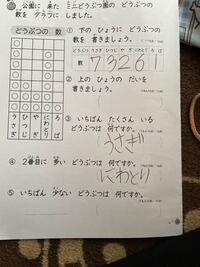 公園に 来た ミニどうぶつ園の どうぶつの
数を グラフに しました。
どうぶつの 数
うさぎ
ひつじ
やぎ
にわとり
ろば
① 下の ひょうに どうぶつの
数を 書きましょう。
どうぶつ うさぎ ひつじ やぎ にわとり ろば
数 7 3 2 6 1
② 上の ひょうの だいを
書きましょう。
③ いちばん たくさん いる
どうぶつは 何ですか。
うさぎ
④ 2番目に 多い どうぶつは 何ですか。
にわとり
⑤ いちばん 少ない どうぶつは 何ですか。